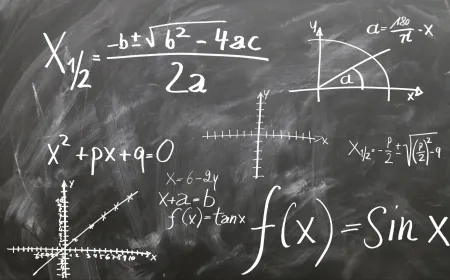 X1/2 = -b±√b²-4ac / 2a
y
a = 180/π · x
a
x
y
x
x² + px + q = 0
X1/2 = -p/2 ± √(p/2)²-q
x = 6 - 2y
x + a = b
f(x) = tan x
f(x) = Sin x
y
x